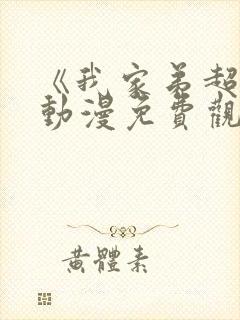 《我家弟超
動漫免費觀
黃體素